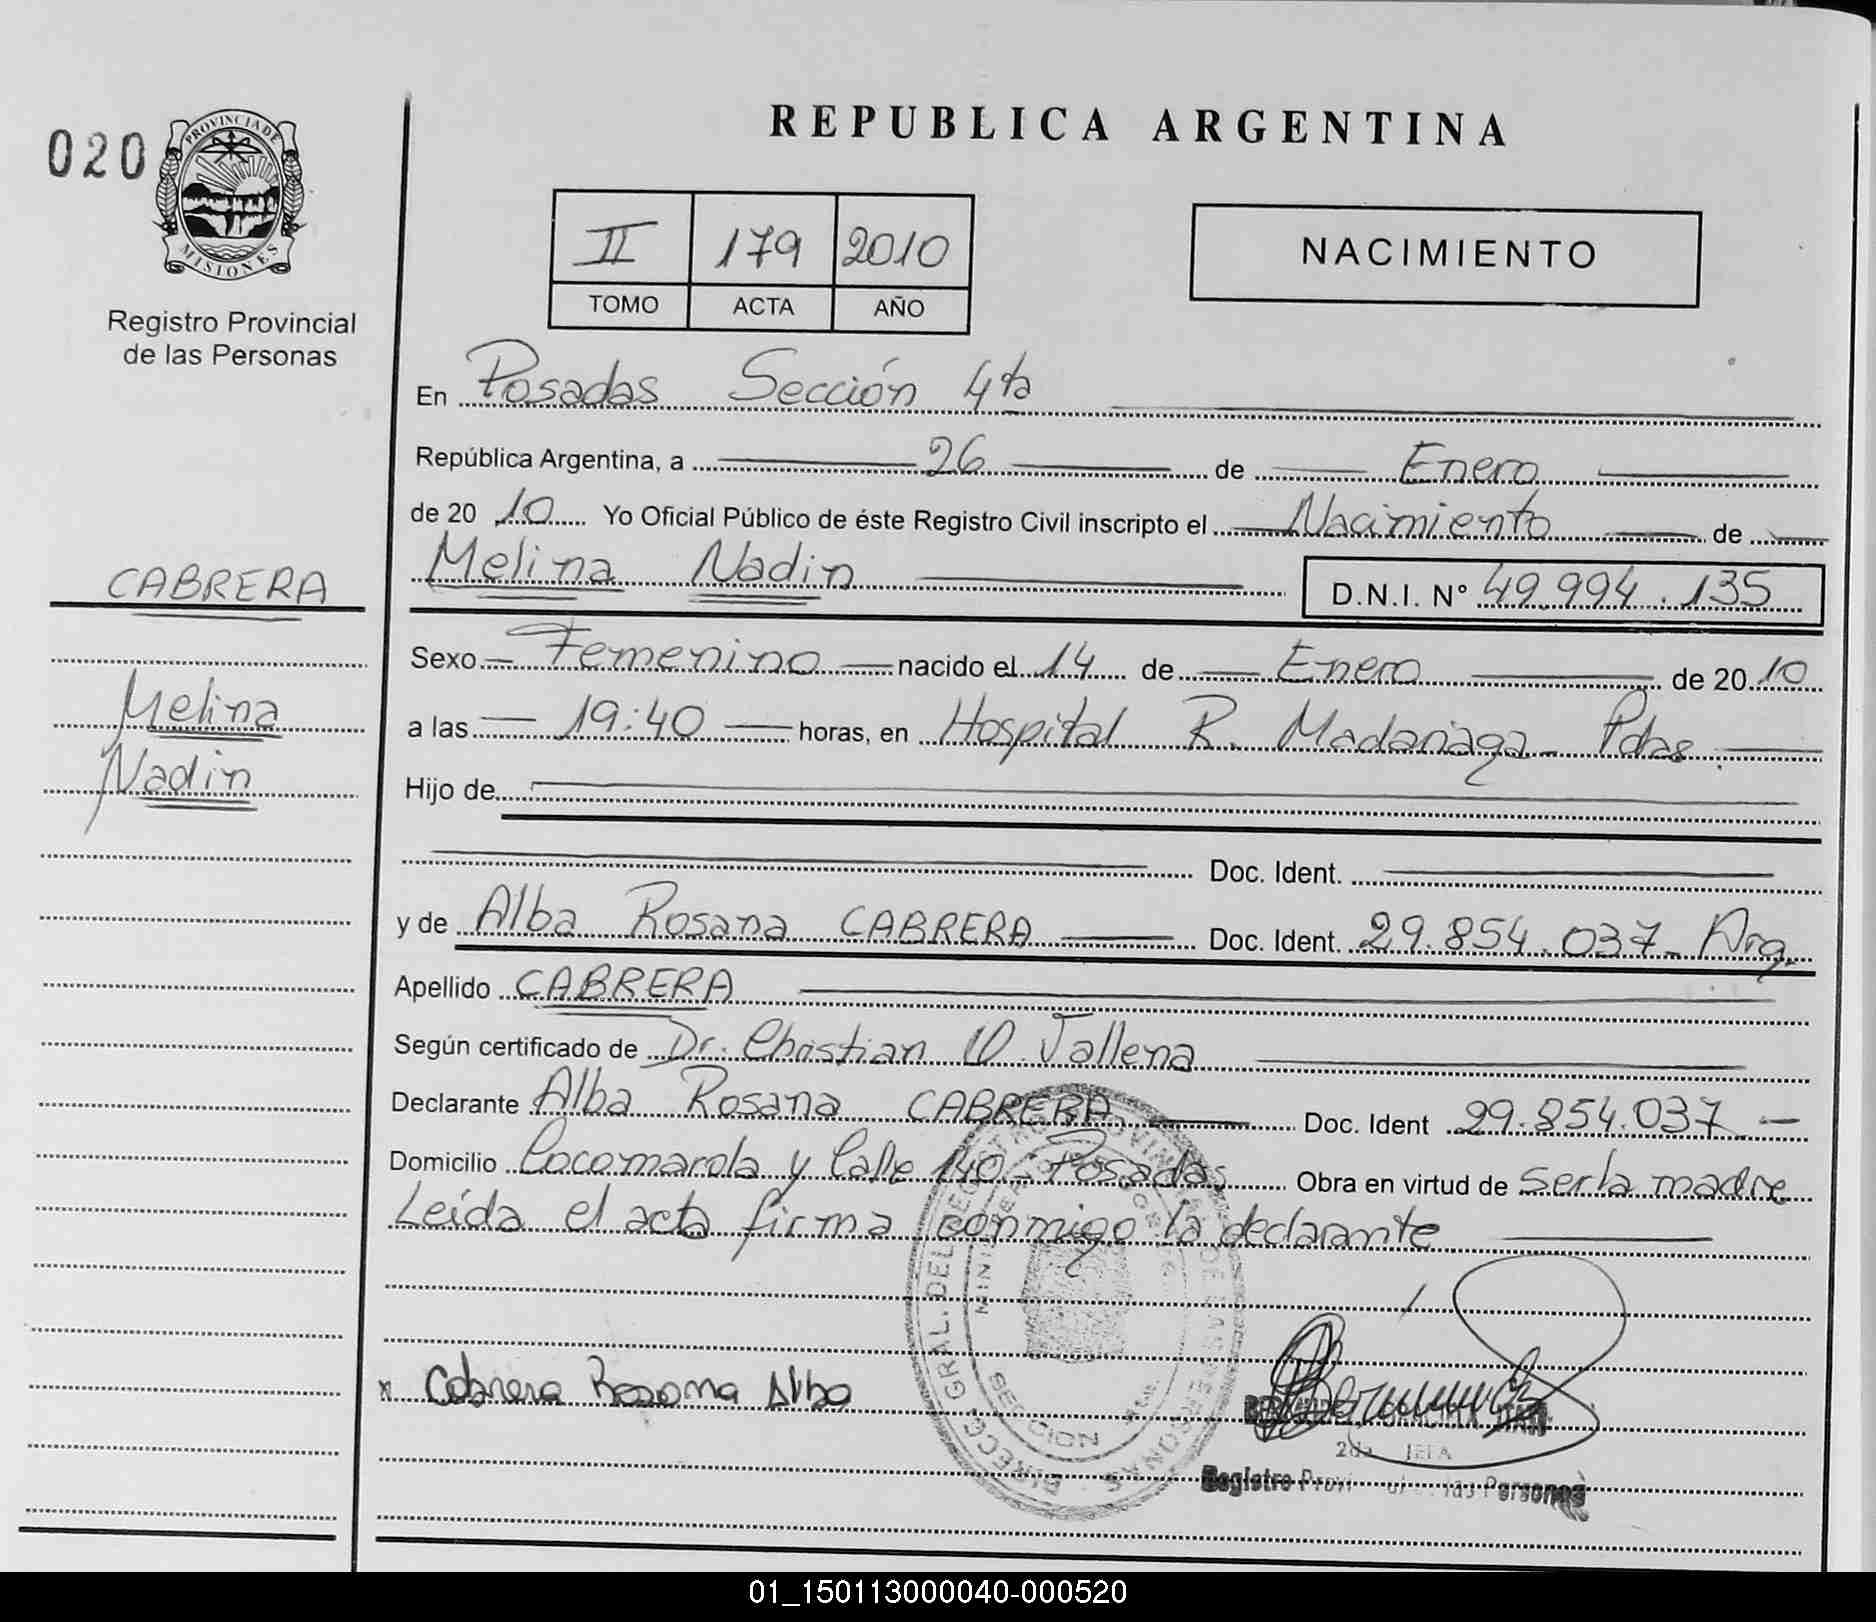 020
PROVINCIA DE
MISIONES
Registro Provincial
de las Personas
REPUBLICA ARGENTINA
II 179 2010
TOMO ACTA AÑO
NACIMIENTO
En Posadas Sección 4ta
República Argentina, a 26 de Enero
de 20 10 Yo Oficial Público de éste Registro Civil inscripto el Nacimiento de
Melina Nadin D.N.I. N° 49.994.135
CABRERA
Melina
Nadin
Sexo Femenino nacido el 14 de Enero de 20 10
a las 19:40 horas, en Hospital R. Madariaga - Pdas.
Hijo de
Doc. Ident.
y de Alba Rosana CABRERA Doc. Ident. 29.854.037 - Arg.
Apellido CABRERA
Según certificado de Dr. Christian
Declarante Alba Rosana CABRERA Doc. Ident 29.854.037 -
Domicilio Cocomarola y Calle 140 - Posadas Obra en virtud de ser la madre
Leída el acta firma conmigo la declarante
Cabrera Rosana Alba
SECCION
2da JEFA
Registro Personas
01_150113000040-000520